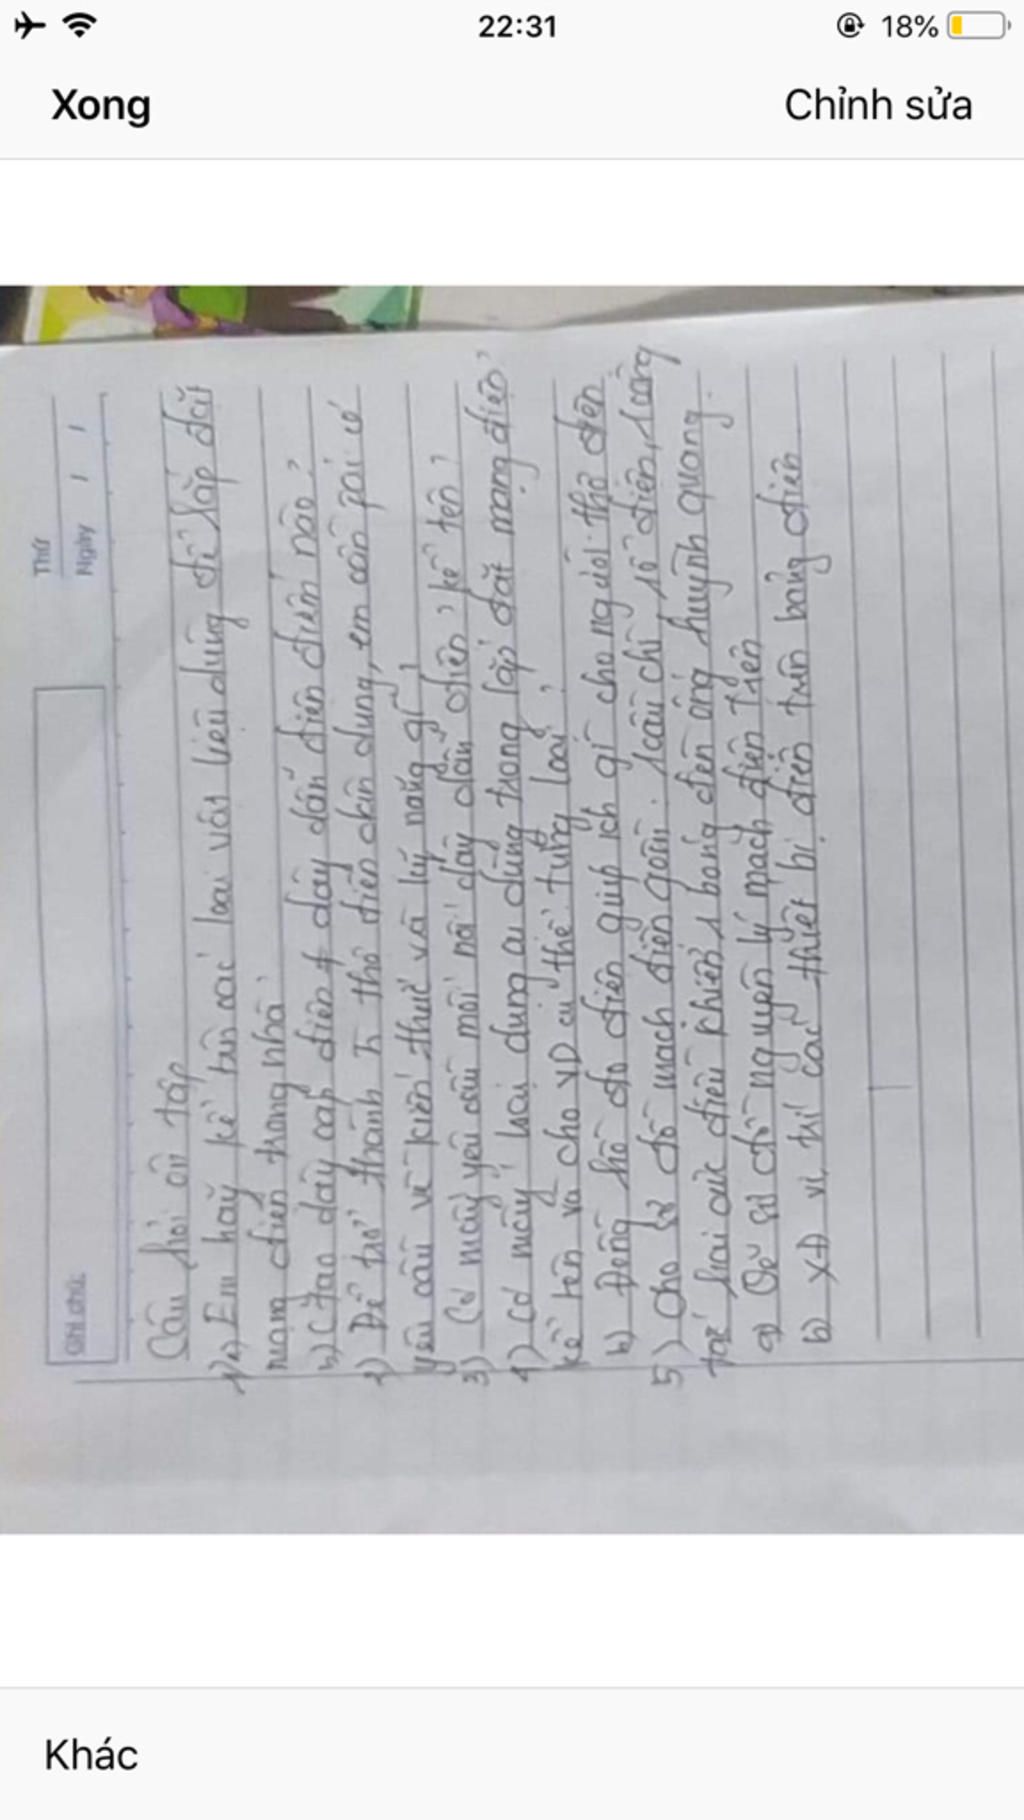 22:31
18%
Xong
Chỉnh sửa
Thứ
Ngày / /
Ghi chú:
Câu hỏi ôn tập
1) a) Em hãy kể tên các loại vật liệu dùng để lắp đặt
mạng điện trong nhà?
b) C tạo dây cáp điện dây dẫn điện điểm nào?
2) Để trở thành 1 thợ điện dân dụng, em cần phải có
yêu cầu về kiến thức và kỹ năng gì?
3) Có mấy yêu cầu mối nối dây dẫn điện? kể tên?
4) Có mấy loại dụng cụ dùng trong lắp đặt mạng điện?
kể tên và cho VD cụ thể từng loại?
b) Đồng hồ đo điện giúp ích gì cho người thợ điện
5) Cho sơ đồ mạch điện gồm. 1 cầu chì, 1 ổ điện, 1 công
tắc hai cực điều khiển 1 bóng đèn ống huỳnh quang.
a) Vẽ sơ đồ nguyên lý mạch điện trên
b) XĐ vị trí các thiết bị điện trên bảng điện
Khác